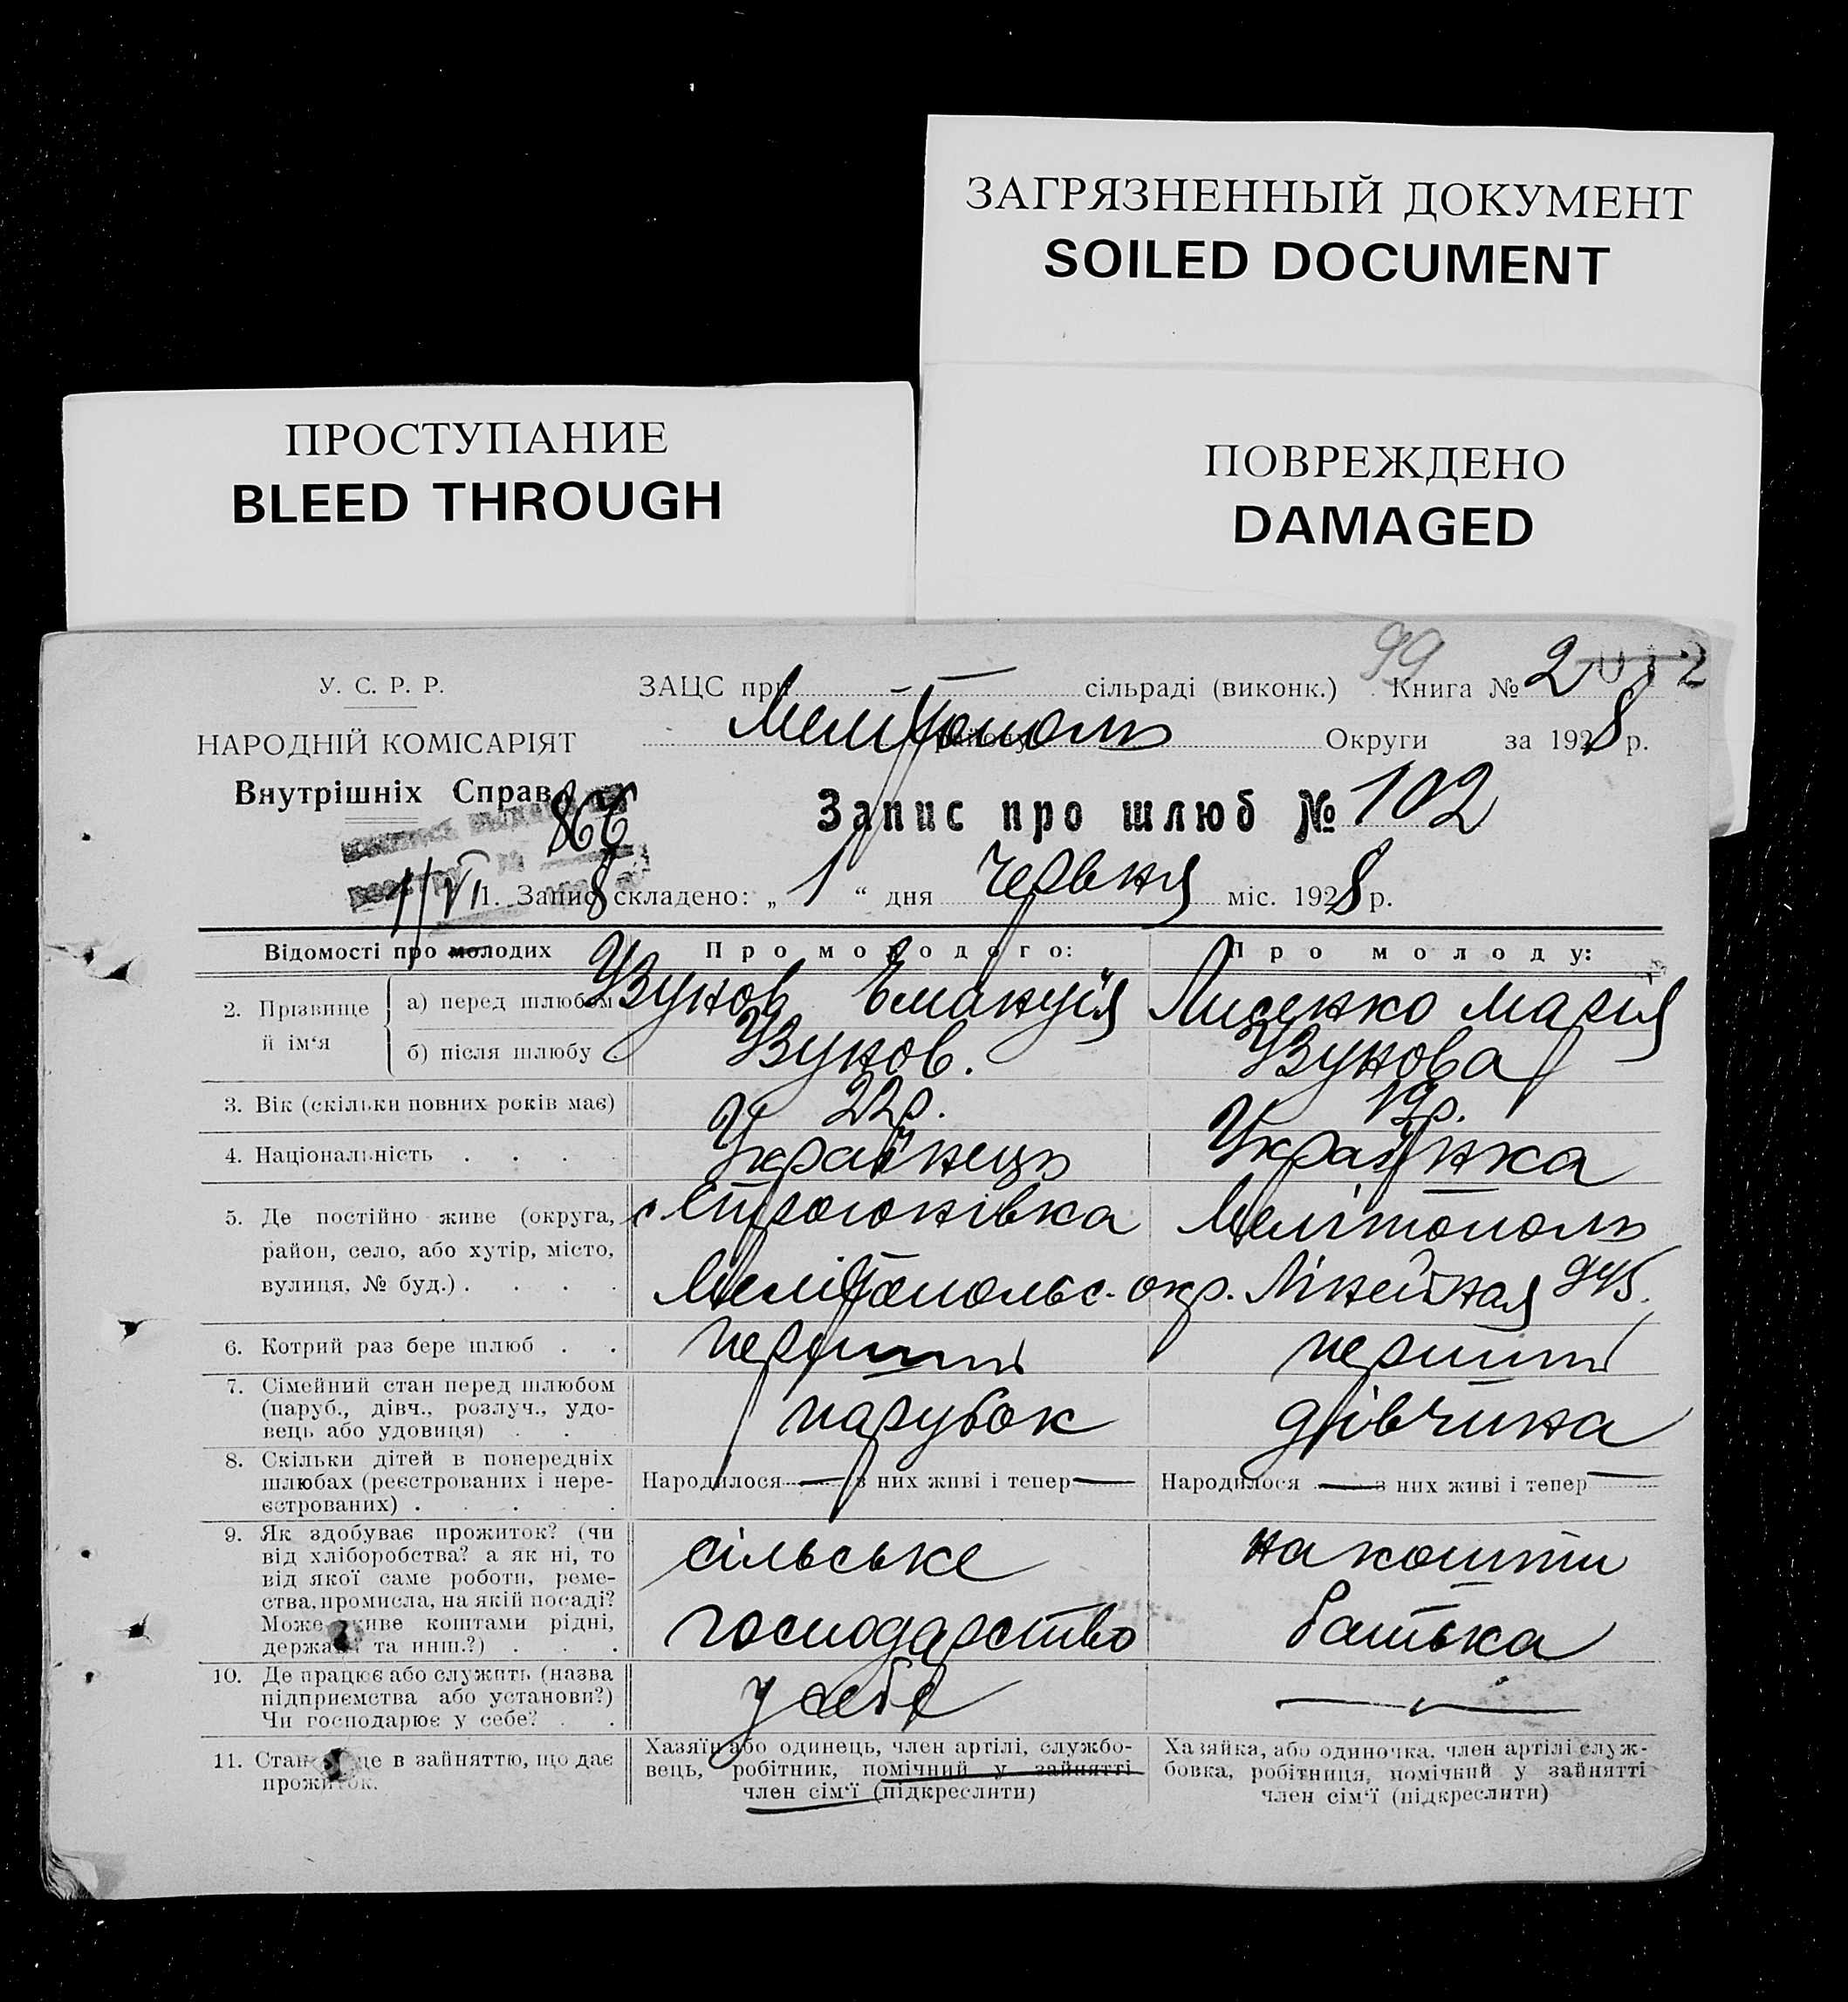 ЗАГРЯЗНЕННЫЙ ДОКУМЕНТ
SOILED DOCUMENT
ПРОСТУПАНИЕ
BLEED THROUGH
ПОВРЕЖДЕНО
DAMAGED
99
У. С. Р. Р.
ЗАЦС при сільраді (виконк.) Книга № 2
НАРОДНІЙ КОМІСАРІЯТ
Мелітополь району Округи за 1928 р.
Внутрішніх Справ
866
Запис про шлюб № 102
1/VI 8
1. Запис складено: „ 1 “ дня червня міс. 1928 р.
Відомості про молодих Про молодого: Про молоду:
2. Прізвище й ім‘я
а) перед шлюбом Узунов Лисенко Марія
б) після шлюбу Узунов. Узунова
3. Вік (скільки повних років має) 22 р. 19 р.
4. Національність . . . . Українець Українка
5. Де постійно живе (округа, с Строгонівка Мелітополь
район, село, або хутір, місто,
вулиця, № буд.) . . . . Мелітопольс. окр. Лінейная
6. Котрий раз бере шлюб . . перший перший
7. Сімейний стан перед шлюбом
(паруб., дівч., розлуч., удо-
вець або удовиця) . . парубок дівчина
8. Скільки дітей в попередніх
шлюбах (реєстрованих і нере-
єстрованих) . . . . .
Народилося — з них живі і тепер — Народилося — з них живі і тепер —
9. Як здобуває прожиток? (чи
від хліборобства? а як ні, то
від якої саме роботи, реме-
ства, промисла, на якій посаді?
Може живе коштами рідні,
держави та инш.?) . . .
сільське на кошти
господарство батька
10. Де працює або служить (назва
підприємства або установи?)
Чи господарює у себе? . .
у себе —
11. Становище в зайняттю, що дає
прожиток.
Хазяїн або одинець, член артілі, службо-
вець, робітник, помічний у зайнятті
член сім‘ї (підкреслити)
Хазяйка, або одиночка, член артілі служ-
бовка, робітниця, помічний у зайнятті
член сім‘ї (підкреслити)